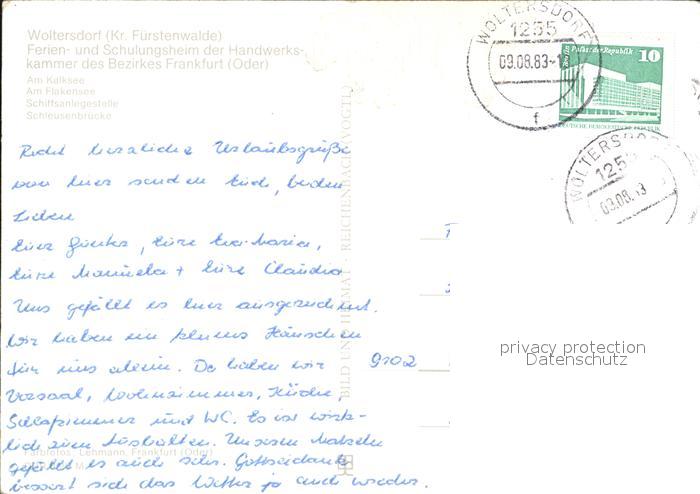 Woltersdorf (Kr. Fürstenwalde)
Ferien- und Schulungsheim der Handwerks-
kammer des Bezirkes Frankfurt (Oder)
Am Kalksee
Am Flakensee
Schiffsanlegestelle
Schleusenbrücke
WOLTERSDORF
1255
09.08.83-1
f
Berlin Palast der Republik 10
DEUTSCHE DEMOKRATISCHE REPUBLIK
WOLTERSDORF
1255
09.08.83
Recht herzliche Urlaubsgrüße
von hier senden Euch, beiden
Lieben
Eure Eva-Maria,
Eure Manuela + Eure Claudia
Uns gefällt es hier ausgezeichnet.
Wir haben ein kleines Häuschen
für uns allein. Da haben wir
9102
Vorsaal, Wohnzimmer, Küche,
Schlafzimmer und WC. Es ist wirk-
lich zum Aushalten. Unseren Mädeln
gefällt es auch sehr. Gottseidank
bessert sich das Wetter ja auch wieder.
BILD UND HEIMAT · REICHENBACH (VOGTL)
Farbfotos: Lehmann, Frankfurt (Oder)
privacy protection
Datenschutz